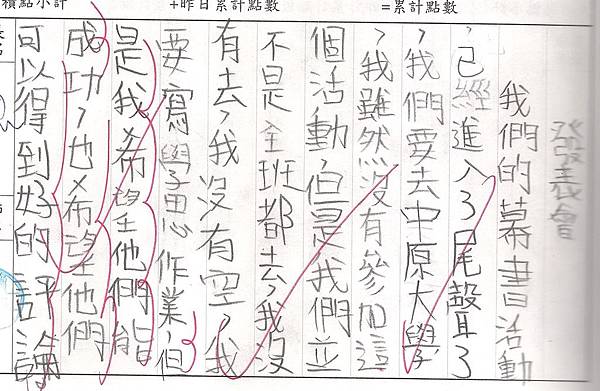 積點小計 +昨日累計點數 =累計點數
發表會
我們的幕書活動
,已經進入了尾聲了
,我們要去中原大學,
,我雖然沒有參加這
個活動,但是我們並
不是全班都去,我沒
有去,我沒有空,我
要寫學思作業,但
是我希望他們能
成功,也希望他們
可以得到好的評論